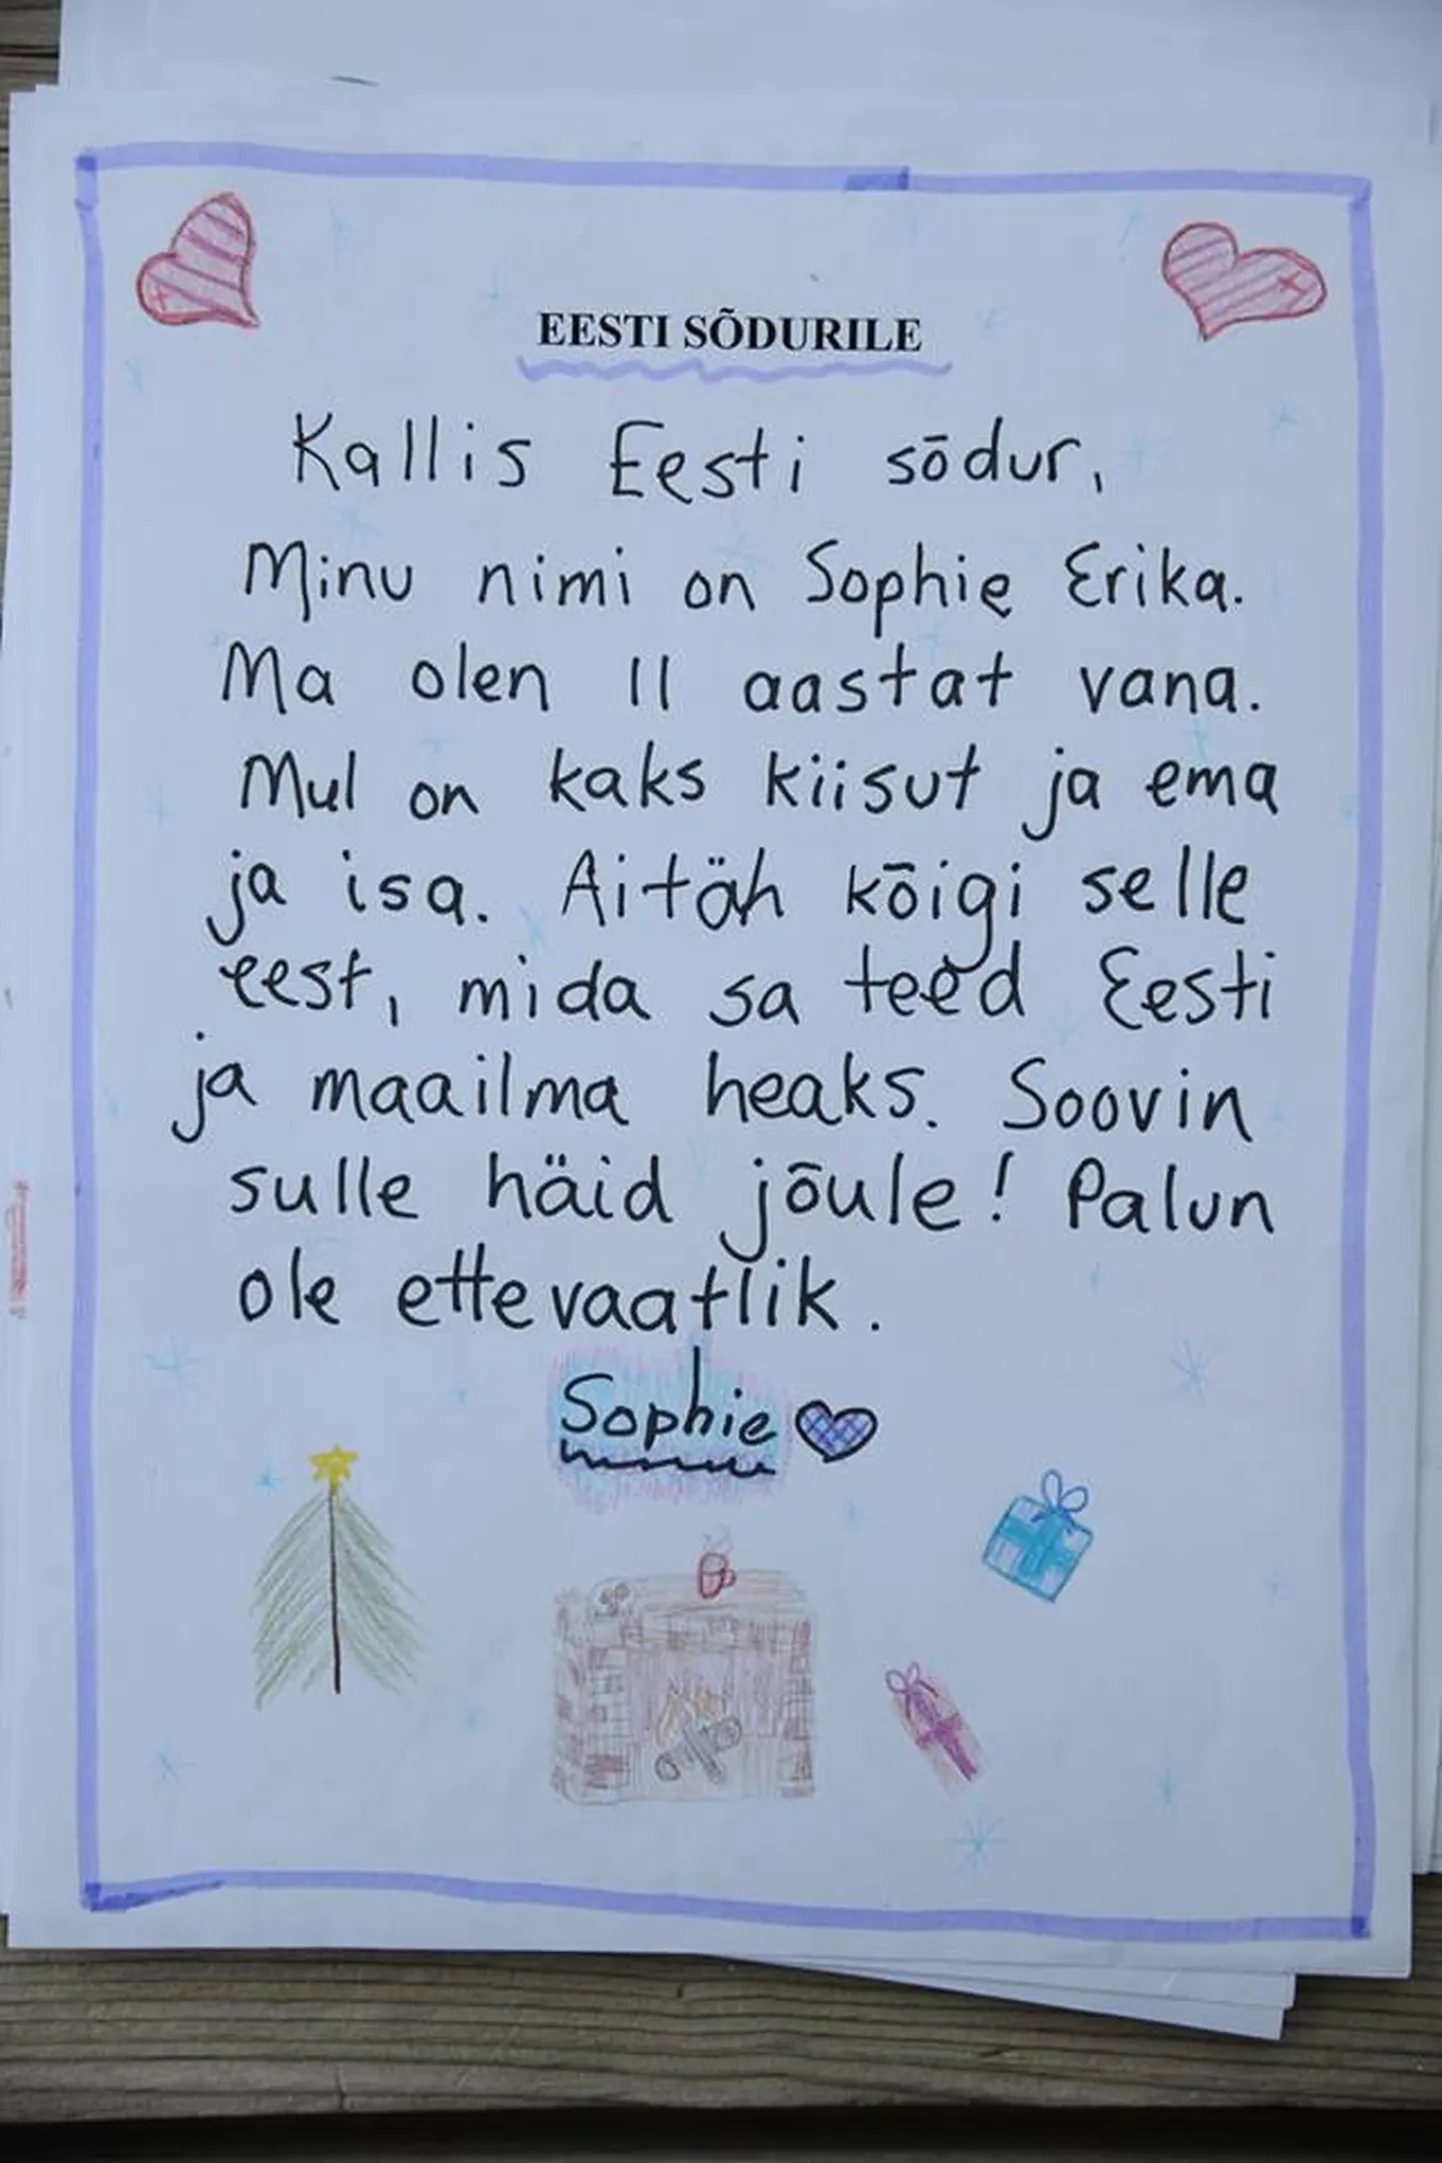 EESTI SÕDURILE
Kallis Eesti sõdur,
Minu nimi on Sophie Erika.
Ma olen 11 aastat vana.
Mul on kaks kiisut ja ema
ja isa. Aitäh kõigi selle
eest, mida sa teed Eesti
ja maailma heaks. Soovin
sulle häid jõule! Palun
ole ettevaatlik.
Sophie